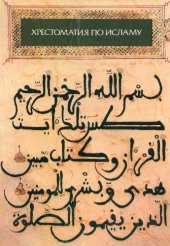 ХРЕСТОМАТИЯ ПО ИСЛАМУ
بسم الله الرحمن الرحيم
طس تلك ايت
القران وكتاب مبين
هدى وبشرى للمومنين
الذين يقيمون الصلوة